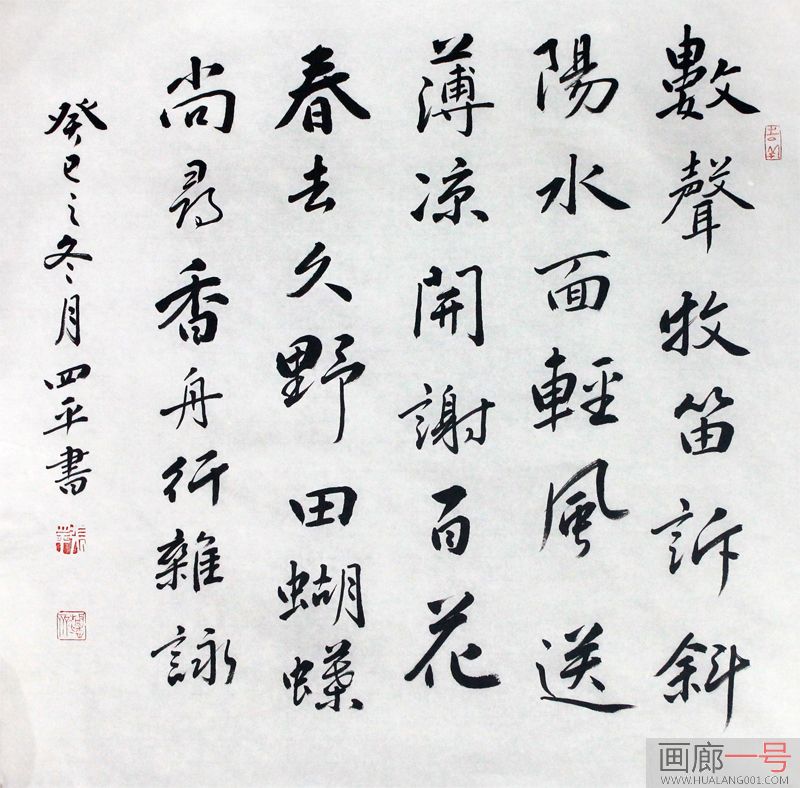 數聲牧笛訴斜
陽水面輕風送
薄凉開謝百花
春去久野田蝴蝶
尚尋香舟行雜詠
癸巳之冬月四平書
画廊一号
WWW.HUALANG001.COM